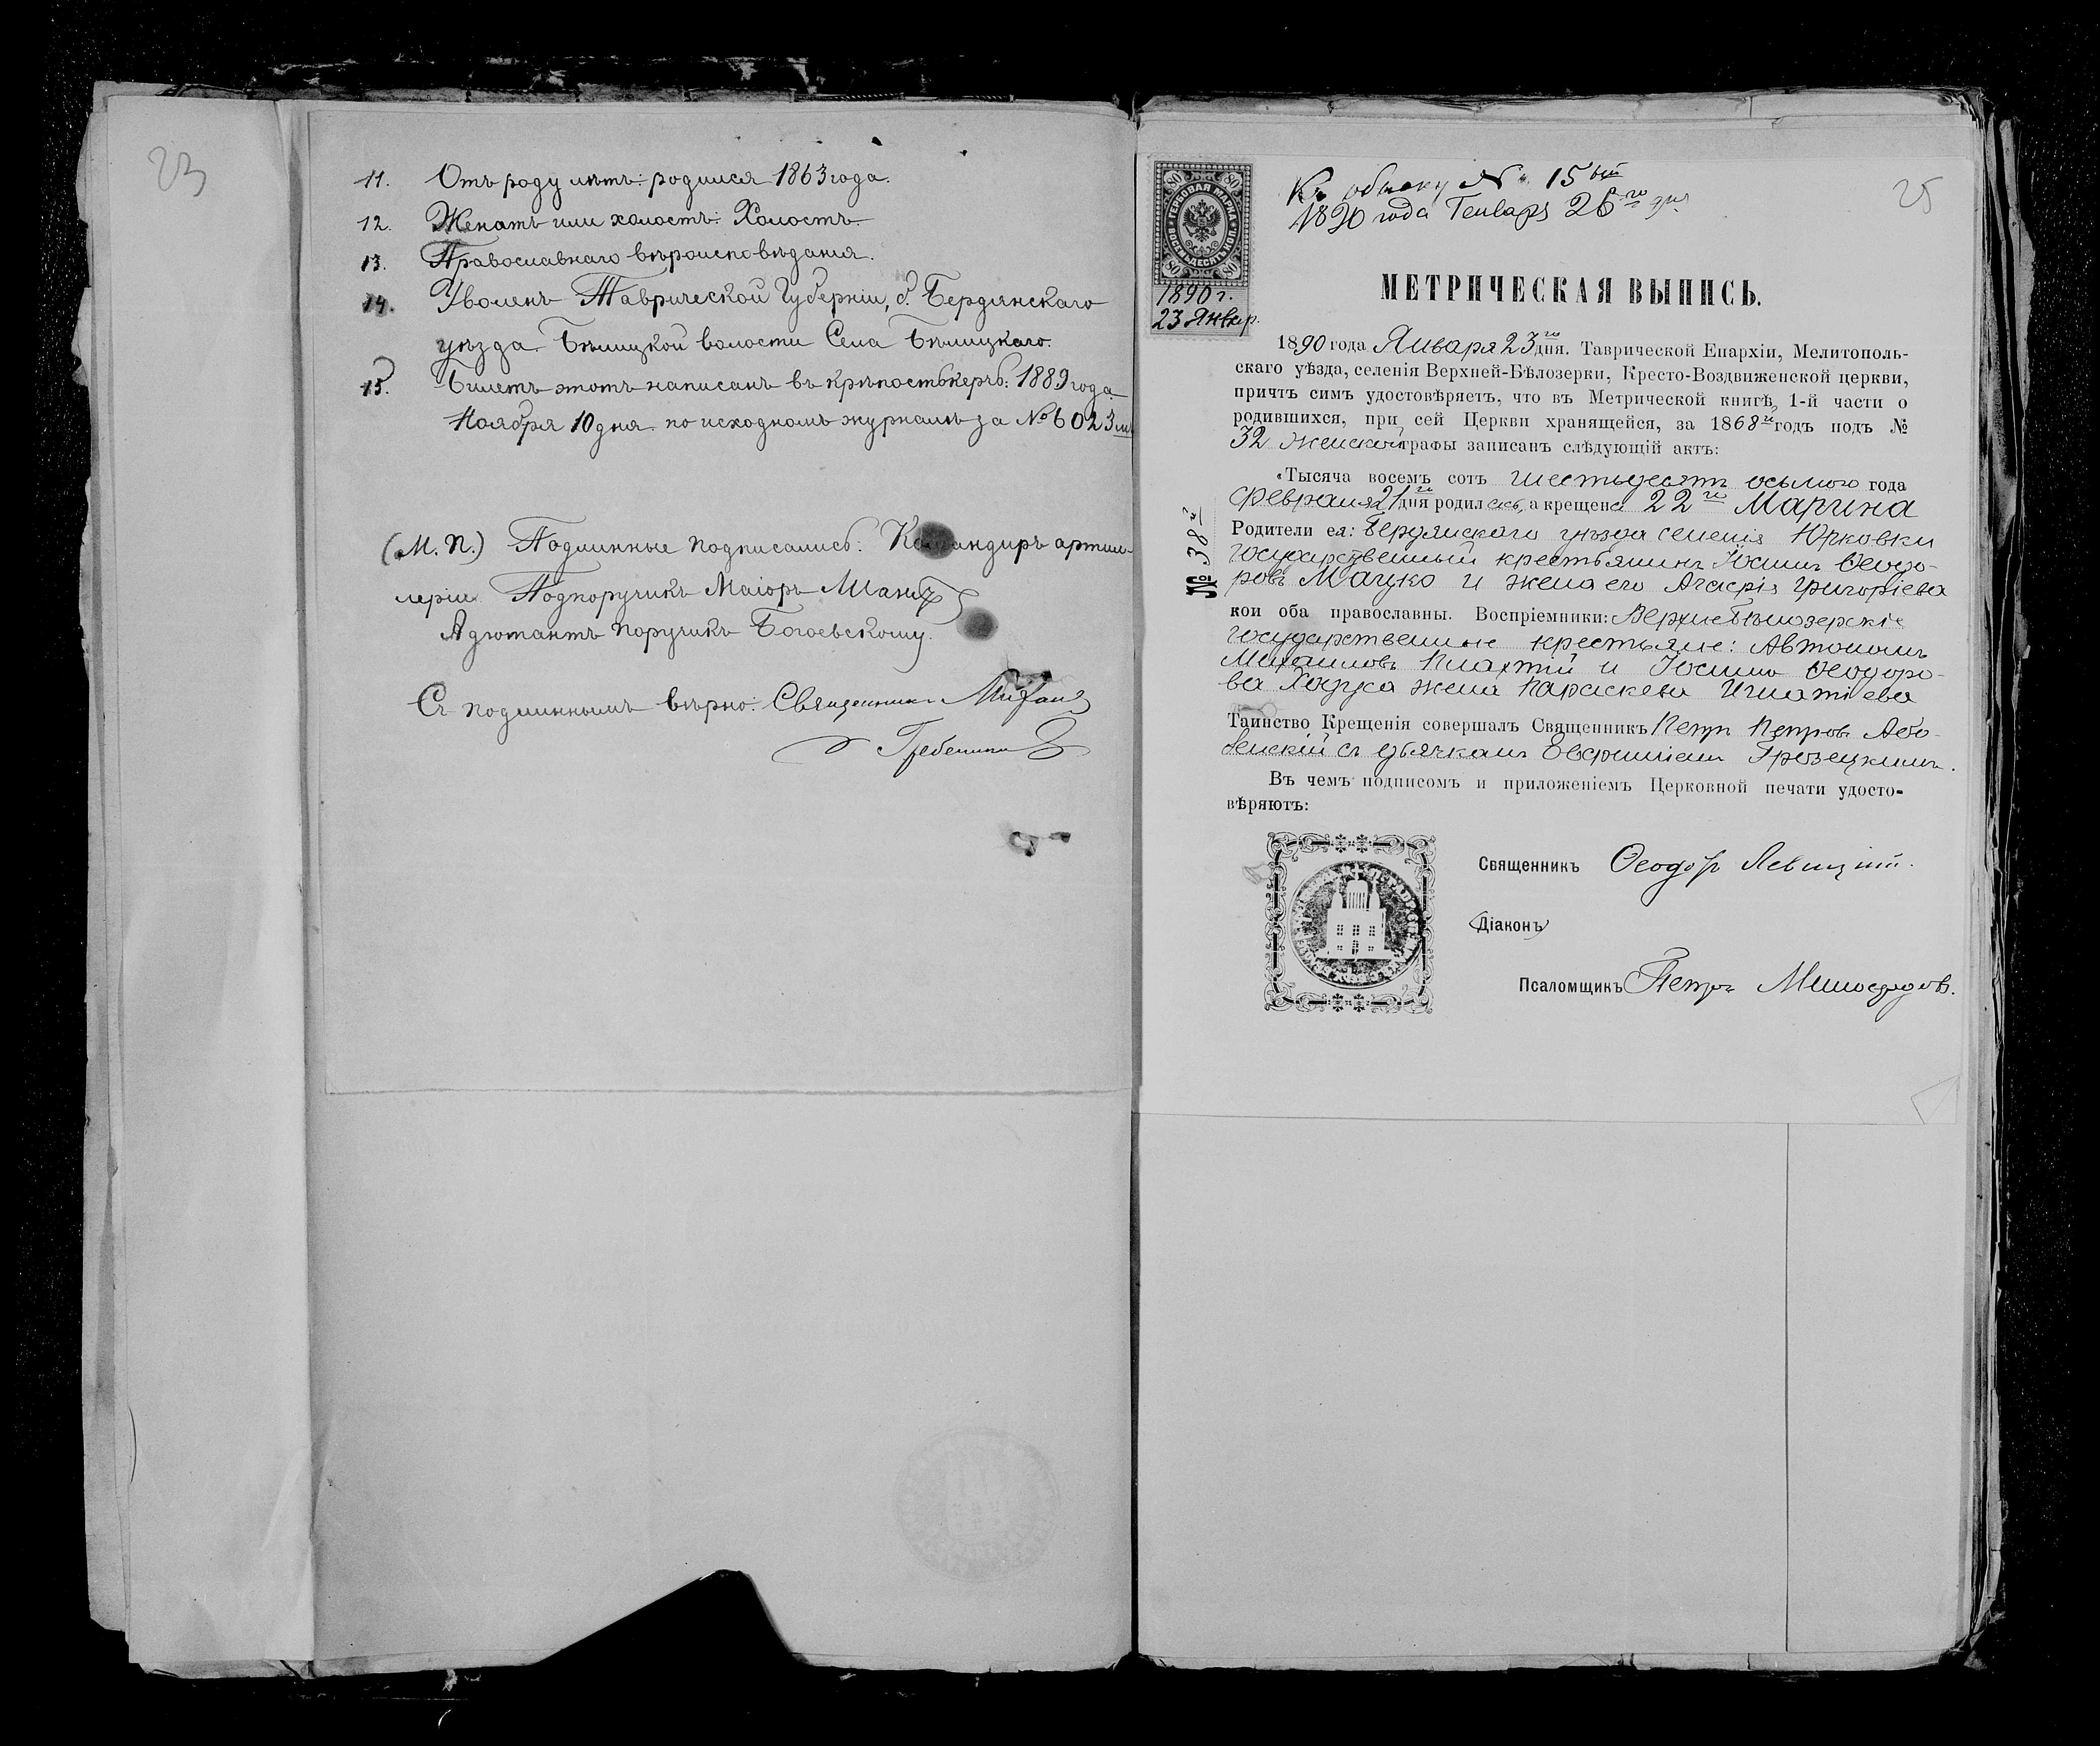 23
11. Отъ роду лѣтъ: родился 1863 года.
12. Женатъ или холостъ: Холостъ.
13. Православнаго вѣроисповѣданія.
14. Уволенъ Таврической Губерніи, Бердянскаго
уѣзда Бѣлицкой волости Села Бѣлицкаго.
15. Билетъ этотъ написанъ въ крѣпость Керчь: 1889 года
Ноября 10 дня по исходному журналу за № 6023
(М. П.) Подлинные подписались: Командиръ артил-
леріи Подпоручикъ Маіоръ
Адютантъ поручикъ Богоевскому.
Съ подлиннымъ вѣрно: Священникъ Михаилъ
Гребенник
25
Къ обыску № 15
1890 года Генваря 26го дня
ГЕРБОВАЯ МАРКА
ВОСЕМЬДЕСЯТЪ КОП.
80 80 80 80
1890 г.
23 Январ.
МЕТРИЧЕСКАЯ ВЫПИСЬ.
1890 года Января 23го дня. Таврической Епархіи, Мелитополь-
скаго уѣзда, селенія Верхней-Бѣлозерки, Кресто-Воздвиженской церкви,
причтъ симъ удостовѣряетъ, что въ Метрической книгѣ, 1-й части о
родившихся, при сей Церкви хранящейся, за 1868й годъ подъ №
32 женской графы записанъ слѣдующій актъ:
«Тысяча восемъ сотъ шестьдесятъ осьмого года
Февраля 21го дня родилась, а крещена 22го Марина
Родители ея: Бердянскаго уѣзда селенія Юрковки
государственный крестьянинъ Іосифъ Ѳеодо-
ровъ Мацко и жена его Агафія Григоріева
кои оба православны. Воспріемники: Верхнебѣлозерскіе
государственные крестьяне: Автономъ
Михаиловъ Плахтій и Іосифа Ѳеодоро-
ва жена Параскева Игнатіева
Таинство Крещенія совершалъ Священникъ Петръ Петровъ Або-
ленскій съ дьячкомъ
Въ чемъ подписомъ и приложеніемъ Церковной печати удосто-
вѣряютъ:
№ 38й
Священникъ Ѳеодоръ Левицкій.
Діаконъ
Псаломщикъ Петръ Милосердовъ.